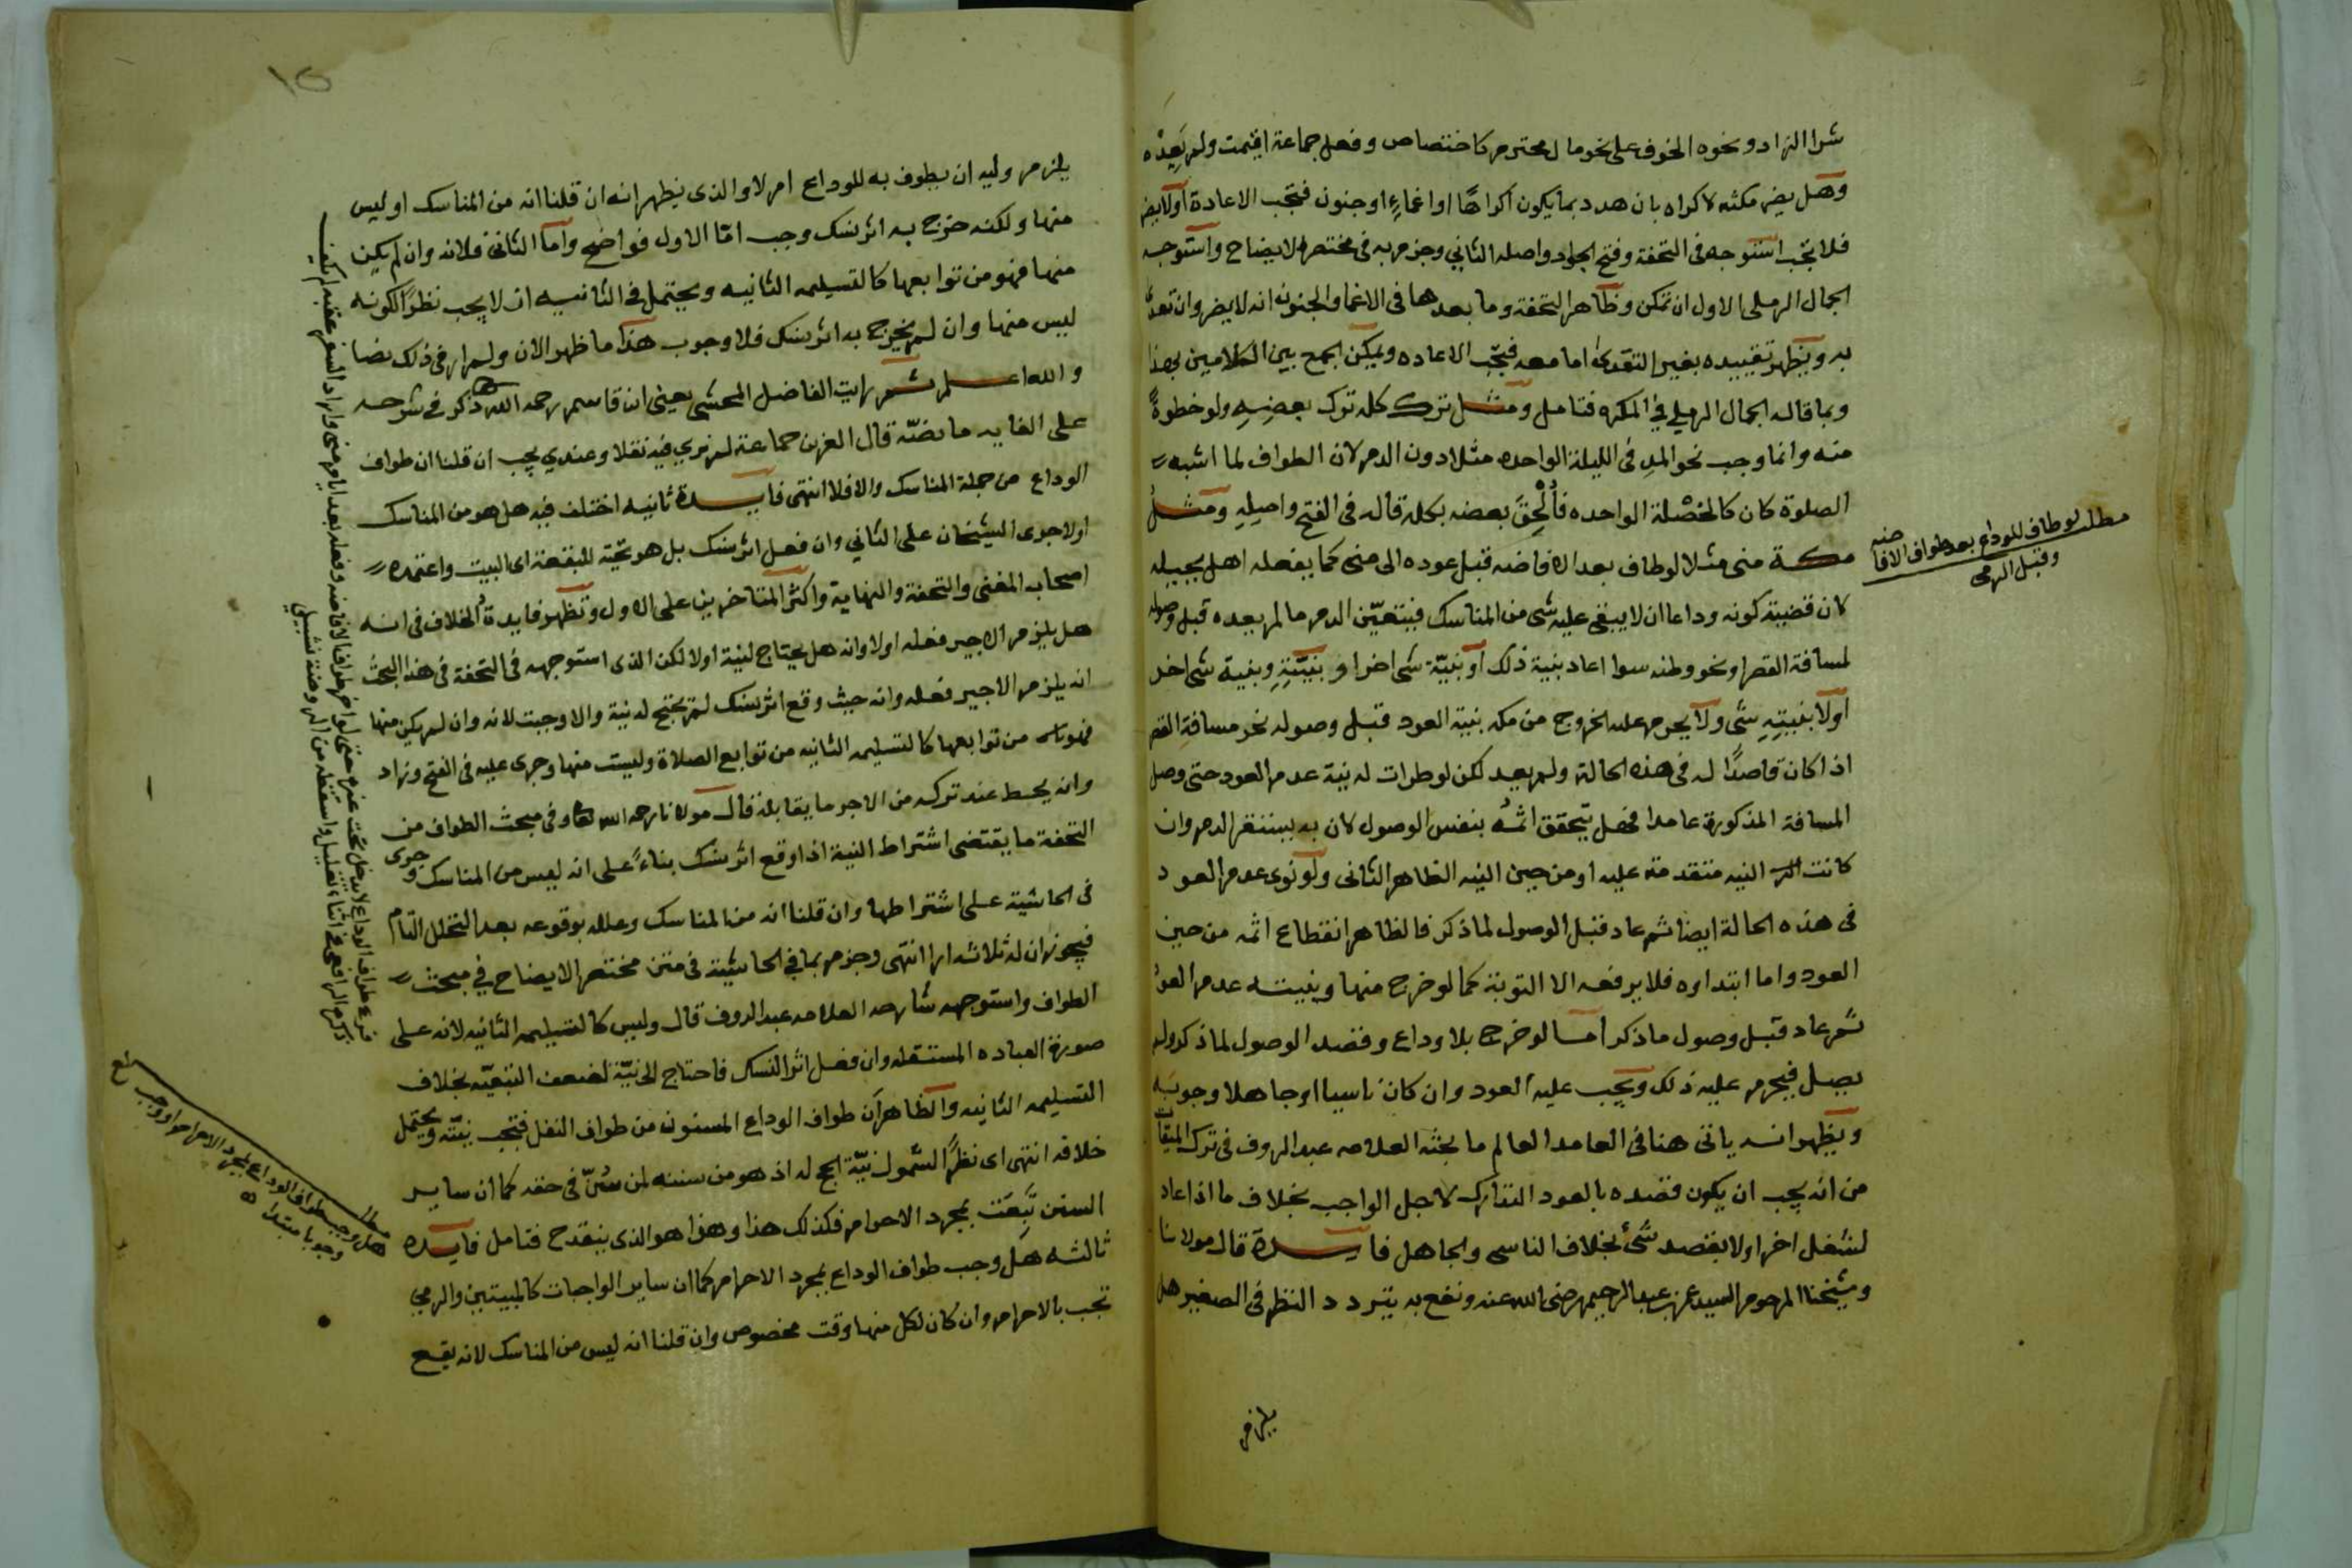 شرا الزاد ونحوه الخوف على نحو مال محترم كاختصاص وفعل جماعة اقيمت ولم يعده
وهل يضر مكثه لاكراه بان هدد بما يكون اكراهًا او اغماءٍ او جنون فتجب الاعادة أولا يضر
فلا تجب استوجه في التحفة وفتح الجواد واصله الثاني وجزم به في مختصر الايضاح واستوجه
الجمال الرملي الاول ان تمكن وظاهر التحفة وما بعدها في الاغما والجنون انه لا يضر وان تعدى
به ويظهر تقييده بغير التعدى اما معه فتجب الاعاده ويمكن الجمع بين الكلامين بهذا
وبما قاله الجمال الرملي في المكره فتامل ومثل ترك كله ترك بعضِهِ ولو خطوةً
منه وانما وجب نحو المد في الليلة الواحده مثلا دون الدم لان الطواف لما اشبه
الصلوة كان كالخصْلة الواحده فأُلْحِقَ بعضه بكله قاله في الفتح واصلِهِ ومثلُ
مكة منى مثلا لو طاف بعد الافاضه قبل عوده الى منى كما يفعله اهل بجيله
لان قضية كونه وداعا ان لا يبقى عليه شي من المناسك فيتعيّن الدم ما لم يعده قبل وصوله
لمسافة القصر او نحو وطنه سوا اعاد بنية ذلك أو بنيّة شي اخر او بنيّتِهِ وبنية شي اخر
أولا بنيتِهِ شي ولا يحرم عليه الخروج من مكه بنية العود قبل وصوله نحو مسافةِ القصر
اذا كان قاصدًا له في هذه الحالة ولم يعد لكن لو طرات له نية عدم العود حتى وصل
المسافة المذكورة عامدا فهل يتحقق اثمُه بنفس الوصول لان به يستقر الدم وان
كانت النيه متقدمة عليه او من حين النيه الظاهر الثاني ولو نوى عدم العود
في هذه الحالة ايضا ثم عاد قبل الوصول لما ذكر فالظاهر انقطاع اثمه من حين
العود واما ابتداوه فلا يرفعه الا التوبة كما لو خرج منها وبنيته عدم العود
ثم عاد قبل وصول ما ذكر أمـا لو خرج بلا وداع وقصد الوصول لما ذكر ولم
يصل فيحرم عليه ذلك ويجب عليه العود وان كان ناسيا او جاهلا وجوبَه
ويظهر انـه ياتي هنا في العامد العالم ما بحثه العلامه عبد الروف في ترك الميقات
من انه يجب ان يكون قصده بالعود التدارك لاجل الواجب بخلاف ما اذا عاد
لشغل اخر اولا بقصد شئ بخلاف الناسى والجاهل فايـدة قال مولانا
وشيخنا المرحوم السيد عمر بن عبد الرحيم رضى الله عنه ونفع به يتردد النظر في الصغير هل
يلزم
مطلب لو طاف للوداع بعد طواف الافاضه
وقبل الرمى
١٥
يلزم وليه ان يطوف به للوداع ام لا والذى يظهر انه ان قلنا انه من المناسك او ليس
منها ولكنه خرج به اثر نسك وجب امّا الاول فواضح وأما الثاني فلانه وان لم يكن
منها فهو من توابعها كالتسليمه الثانيه ويحتمل في الثانيه ان لا يجب نظرًا لكونه
ليس منها وان لم يخرج به اثر نسك فلا وجوب هذا ما ظهر الان ولم ار في ذلك نصا
والله اعـلم ثـم رايت الفاضل المحشي يعني ابن قاسم رحمه الله ذكر في شرحه
على الغايه ما نصّه قال العز بن جماعة لم نرى فيه نقلا وعندي يجب ان قلنا ان طواف
الوداع من جملة المناسك والا فلا انتهى فايـدة ثانيه اختلف فيه هل هو من المناسك
اولا جرى الشيخان على الثاني وان فعل اثر نسك بل هو تحية للبقعة اى البيت واعتمده
اصحاب المغنى والتحفة والنهاية واكثر المتاخرين على الاول وتظهر فايدةُ الخلاف في انه
هل يلزم الاجير فعله اولا وانه هل يحتاج لنية اولا لكن الذى استوجهه في التحفة في هذا البحث
انه يلزم الاجير فعله وانه حيث وقع اثر نسك لم يحتج له نية والا وجبت لانه وان لم يكن منها
فهو من توابعها كالتسليمه الثانيه من توابع الصلاة وليست منها وجرى عليه في الفتح وزاد
وانه يحط عند تركه من الاجر ما يقابله قال مولانا رحمه الله وفي مبحث الطواف من
التحفة ما يقتضى اشتراط النية اذا وقع اثر نسك بناءً على انه ليس من المناسك وجرى
في الحاشية على اشتراطها وان قلنا انه من المناسك وعلله بوقوعه بعد التحلل التام
فيجوز ان له ثلاثـه ارا انتهى وجزم بما في الحاشية في متن مختصر الايضاح في مبحث
الطواف واستوجهه شارحه العلامه عبد الروف قال وليس كالتسليمه الثانيه لانه على
صورة العباده المستقله وان فعل اثر النسك فاحتاج الى نيّة لضعف التبعيّه بخلاف
التسليمه الثانيه والظاهر أن طواف الوداع المسنون من طواف النفل فتجب نيّته ويحتمل
خلافه انتهى اى نظرًا لشمول نيّة الحج له اذ هو من سننه لمن سُنّ في حقه كما ان ساير
السنن تَبِعَت بمجرد الاحرام فكذلك هذا وهذا هو الذى ينقدح فتامل فايـدة
ثالثـه هل وجب طواف الوداع بمجرد الاحرام كما ان ساير الواجبات كالمبيتين والرمي
تجب بالاحرام وان كان لكل منها وقت مخصوص وان قلنا انه ليس من المناسك لانه يقـع
فرع طواف الوداع لا يدخل تحت غيره حتى لو اخر طواف الافاضه وفعله بعد ايام منى واراد السفر عقبه لم يكف
ذكره الرافعي في اثناء تعليل واسقطه من الروضة
مطلب
هل وجب طواف الوداع بمجرد الاحرام او وجب
وجوبا مبتدا